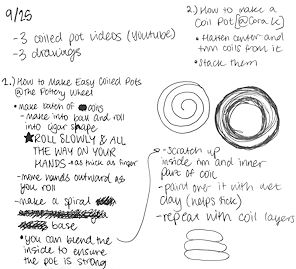 9/25
-3 coiled pot videos (Youtube)
-3 drawings
1.) How to Make Easy Coiled Pots
@The Pottery Wheel
• make batch of coils
- make into ball and roll
into cigar shape
★ROLL SLOWLY & ALL
THE WAY ON YOUR
HANDS - as thick as finger
- move hands outward as
you roll
- make a spiral
base
• you can blend the
inside to ensure
the pot is strong
2.) How to make a
Coil Pot [@Cora
• flatten center and
trim coils from it
• Stack them
- scratch up
inside rim and inner
part of coil
- paint over it with wet
clay (helps stick)
- repeat with coil layers